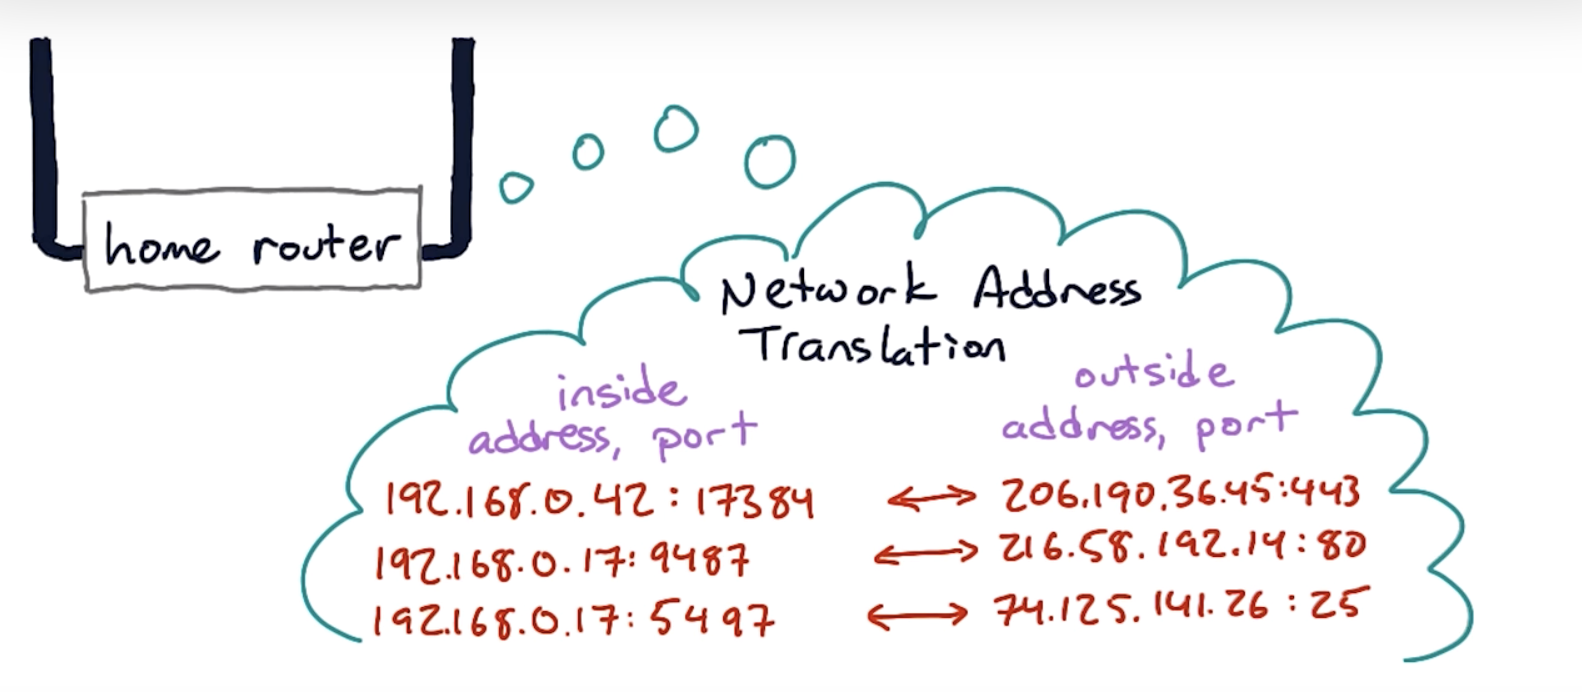 home router
Network Address
Translation
inside
address, port
outside
address, port
192.168.0.42:17384 ↔ 206.190.36.45:443
192.168.0.17:9487 ↔ 216.58.192.14:80
192.168.0.17:5497 ↔ 74.125.141.26:25